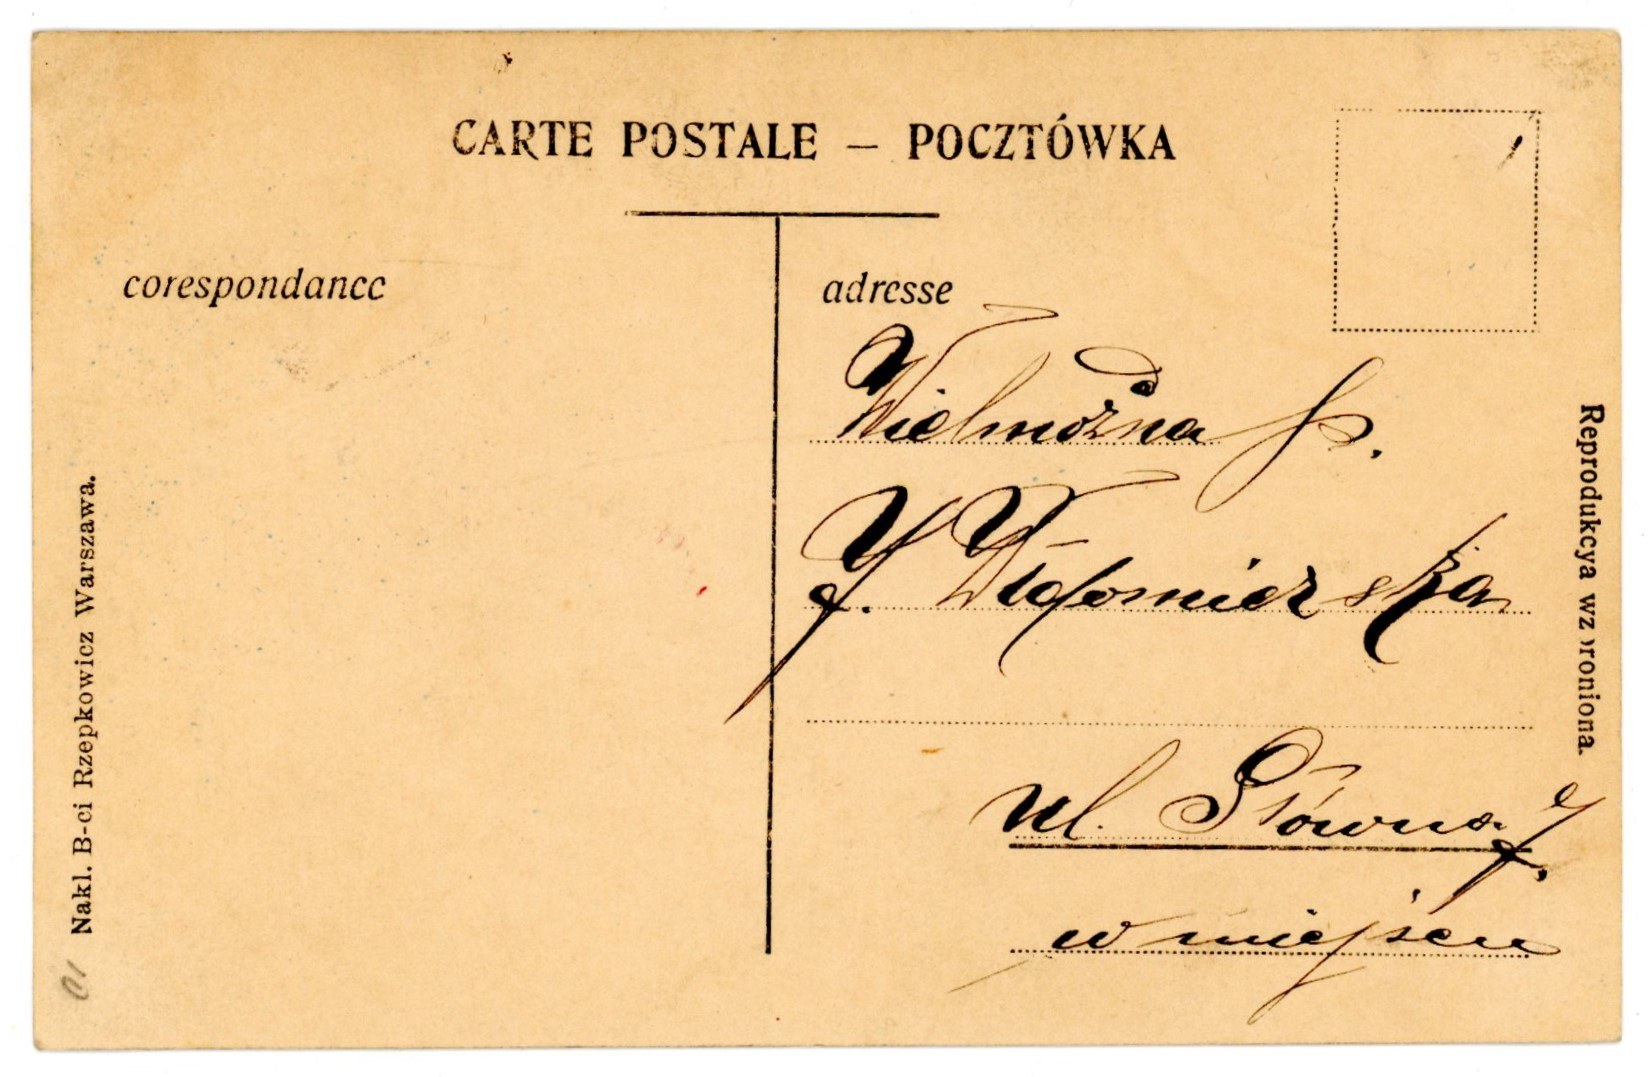 CARTE POSTALE — POCZTÓWKA
corespondance
adresse
Wielmożna P.
J.
ul. Główna 7.
w miejscu
Nakl. B-ci Rzepkowicz Warszawa.
Reprodukcya wzbroniona.